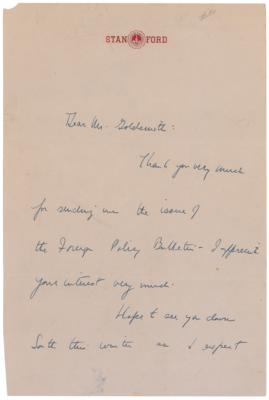 STANFORD
Dear Mr. Goldsmith:
Thank you very much
for sending me the issue of
the Foreign Policy Bulletin - I appreciate
your interest very much.
Hope to see you down
South this winter as I expect